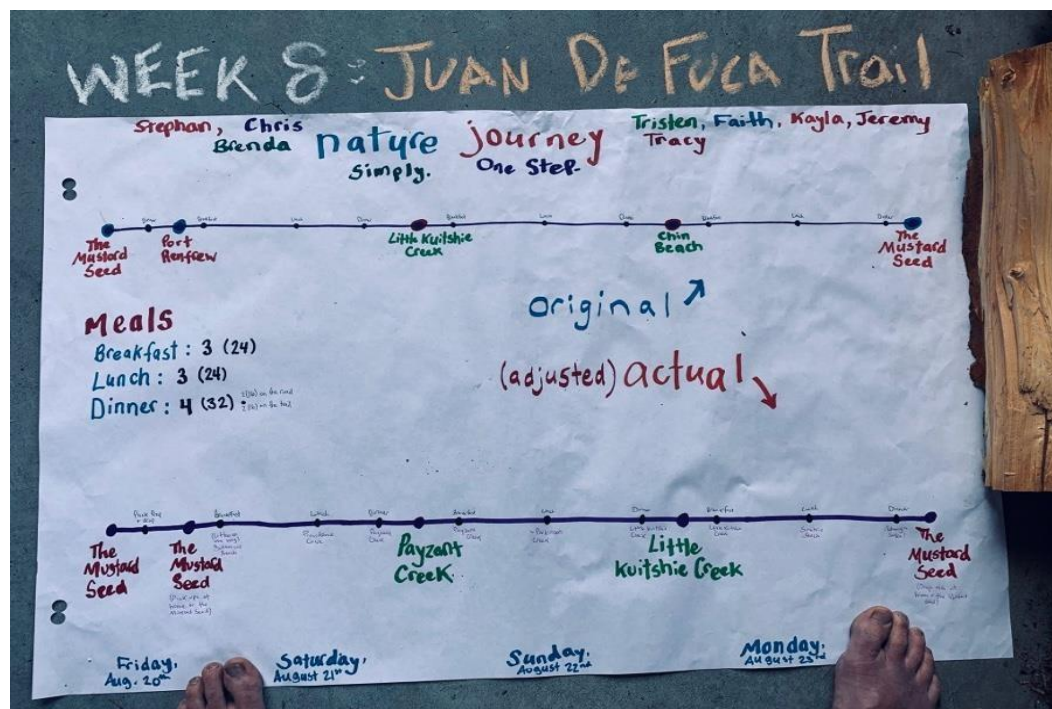 WEEK 8: JUAN DE FUCA Trail
Stephan, Chris
Brenda
nature journey
Simply. One Step.
Tristen, Faith, Kayla, Jeremy
Tracy
Dinner Breakfast Lunch Dinner Breakfast Lunch Dinner Breakfast Lunch Dinner
The Mustard Seed
Port Renfrew
Little Kuitshie Creek
Chin Beach
The Mustard Seed
original
Meals
Breakfast: 3 (24)
Lunch: 3 (24)
Dinner: 4 (32)
(adjusted) actual
Breakfast Lunch Dinner Breakfast Lunch Dinner Breakfast Lunch Dinner
The Mustard Seed
The Mustard Seed
Payzant Creek
Little Kuitshie Creek
The Mustard Seed
Friday, Aug. 20th
Saturday, August 21st
Sunday, August 22nd
Monday, August 23rd